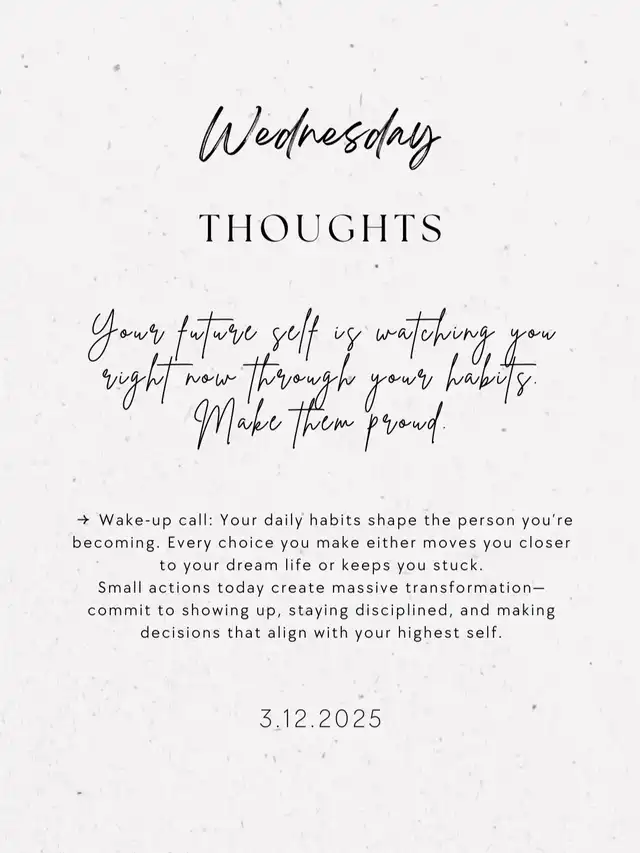 Wednesday
THOUGHTS
Your future self is watching you
right now through your habits.
Make them proud.
→ Wake-up call: Your daily habits shape the person you're
becoming. Every choice you make either moves you closer
to your dream life or keeps you stuck.
Small actions today create massive transformation—
commit to showing up, staying disciplined, and making
decisions that align with your highest self.
3.12.2025